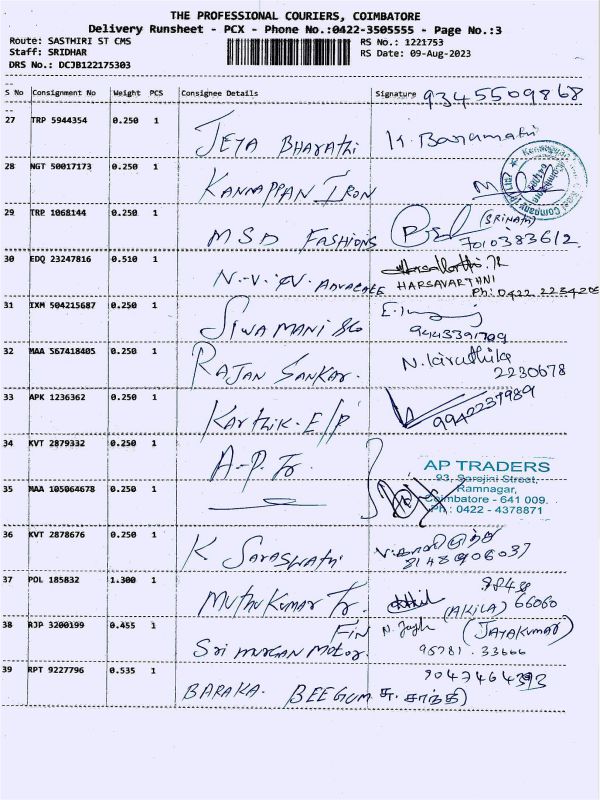 THE PROFESSIONAL COURIERS, COIMBATORE
Delivery Runsheet - PCX - Phone No.:0422-3505555 - Page No.:3
Route: SASTHIRI ST CMS RS No.: 1221753
Staff: SRIDHAR RS Date: 09-Aug-2023
DRS No.: DCJB122175303
S No Consignment No Weight PCS Consignee Details Signature 9345509868
27 TRP 5944354 0.250 1 JEYA BHARATHI
28 NGT 50017173 0.250 1 KANNAPPAN IRON
29 TRP 1068144 0.250 1 MSD FASHIONS (SRINATH)
7010383612
30 EDQ 23247816 0.510 1 N.V. ADVOCATE HARSAVARTHNI
Ph: 0422 2234206
31 IXM 504215687 0.250 1 SIVAMANI &CO
9443391709
32 MAA 567418405 0.250 1 RAJAN SANKAR. N.Kiruthika
2230678
33 APK 1236362 0.250 1 KARTHIK. E/P 9942237989
34 KVT 2879332 0.250 1 A.P. Tr.
AP TRADERS
93, Sarojini Street,
Ramnagar,
Coimbatore - 641 009.
Ph : 0422 - 4378871
35 MAA 105064678 0.250 1
36 KVT 2878676 0.250 1 K SARASWATHI
8148906037
37 POL 185832 1.300 1 MUTHUKUMAR Tr. (AKILA) 66060
38 RJP 3200199 0.455 1 SRI MURGAN MOTOR. FIN (JAYAKUMAR)
95781. 33666
39 RPT 9227796 0.535 1 BARAKA. BEEGUM சு. சாந்தி)